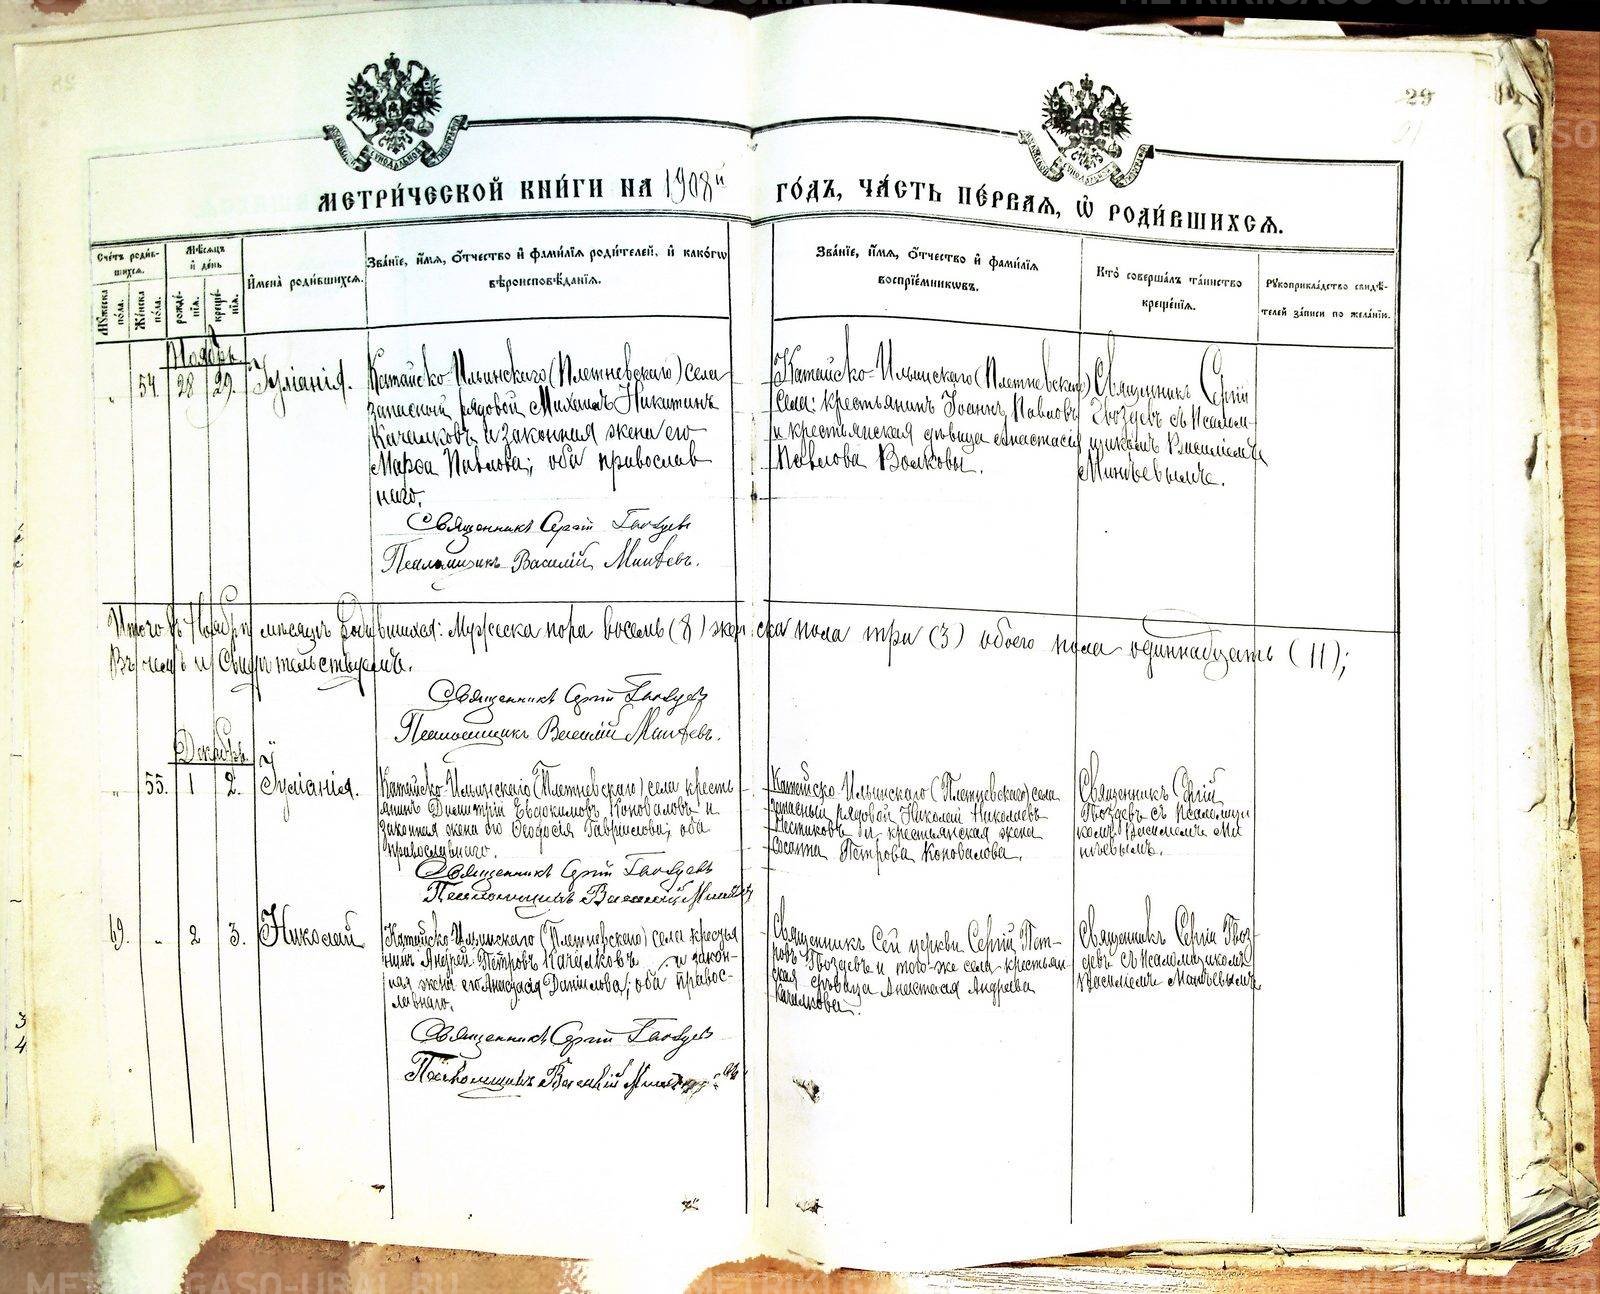 29
МЕТРИ́ЧЕСКОЙ КНИ́ГИ НА 1908й ГО́ДЪ, ЧА́СТЬ ПЕ́РВАѦ, Ѡ РОДИ́ВШИХСѦ.
Сче́тъ роди́вшихсѧ.
Мѣ́сѧцъ и де́нь
Мꙋ́жеска по́ла.
Же́нска по́ла.
рожде́нїѧ.
креще́нїѧ.
Имена̀ роди́вшихсѧ.
Зва́нїе, и́мѧ, о́тчество и фами́лїѧ роди́телей, и како́гѡ
вѣроисповѣ́данїѧ.
Зва́нїе, и́мѧ, о́тчество и фами́лїѧ
воспрїе́мникѡвъ.
Кто̀ соверша́лъ та́инство
креще́нїѧ.
Рꙋкоприкла́дство свидѣ́телей за́писи по жела́нїю.
Ноябрь.
54. 28 29. Іуліанія.
Катайско-Ильинскаго (Плетневскаго) села
запасный рядовой Михаилъ Никитинъ
Качалковъ и законная жена его
Марѳа Павлова; оба православ
наго.
Священникъ Сергій Гвоздевъ
Псаломщикъ Василій Минѣевъ.
Катайско-Ильинскаго (Плетневскаго)
села: крестьянинъ Іоаннъ Павловъ
и крестьянская дѣвица Анастасія
Павлова Волковы.
Священникъ Сергій
Гвоздевъ съ Псалом-
щикомъ Василіемъ
Минѣевымъ.
Итого въ Ноябрѣ мѣсяцѣ родившихся: мужеска пола восемь (8) женска пола три (3) обоего пола одиннадцать (11);
Въ чемъ и свидѣтельствуемъ.
Священникъ Сергій Гвоздевъ
Псаломщикъ Василій Минѣевъ.
Декабрь.
55. 1 2. Іуліанія.
Катайско-Ильинскаго (Плетневскаго) села кресть
янинъ Димитрій Евдокимовъ Коноваловъ и
законная жена его Ѳеодосія Гавриилова; оба
православнаго.
Священникъ Сергій Гвоздевъ
Псаломщикъ Василій Минѣевъ
Катайско-Ильинскаго (Плетневскаго) села
запасный рядовой Николай Николаевъ
и крестьянская жена
Петрова Коновалова.
Священникъ Сергій
Гвоздевъ съ Псаломщи
комъ Василіемъ Ми
нѣевымъ.
69. 2 3. Николай
Катайско-Ильинскаго (Плетневскаго) села крестья
нинъ Андрей Петровъ Качалковъ и закон-
ная жена его Анастасія Данилова; оба правос-
лавнаго.
Священникъ Сергій Гвоздевъ
Псаломщикъ Василій Минѣевъ
Священникъ Сей церкви Сергій Пет-
ровъ Гвоздевъ и того-же села крестьян-
ская дѣвица Анастасія Андреева
Качалкова.
Священникъ Сергій Гвоз-
девъ съ Псаломщикомъ
Василіемъ Минѣевымъ
3
4
METRIKI.GASO-URAL.RU